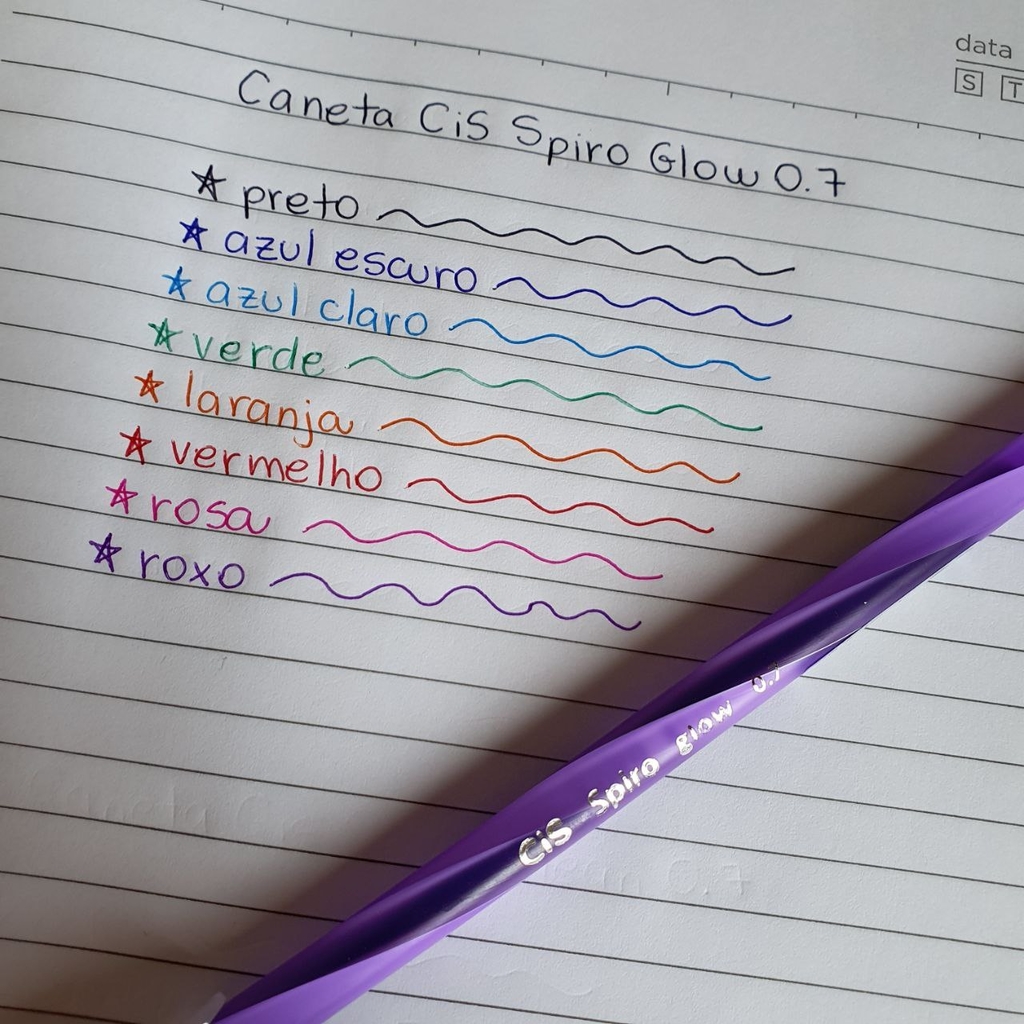 data
S T
Caneta CiS Spiro Glow 0.7
preto
azul escuro
azul claro
verde
laranja
vermelho
rosa
roxo
CiS Spiro glow 0.7